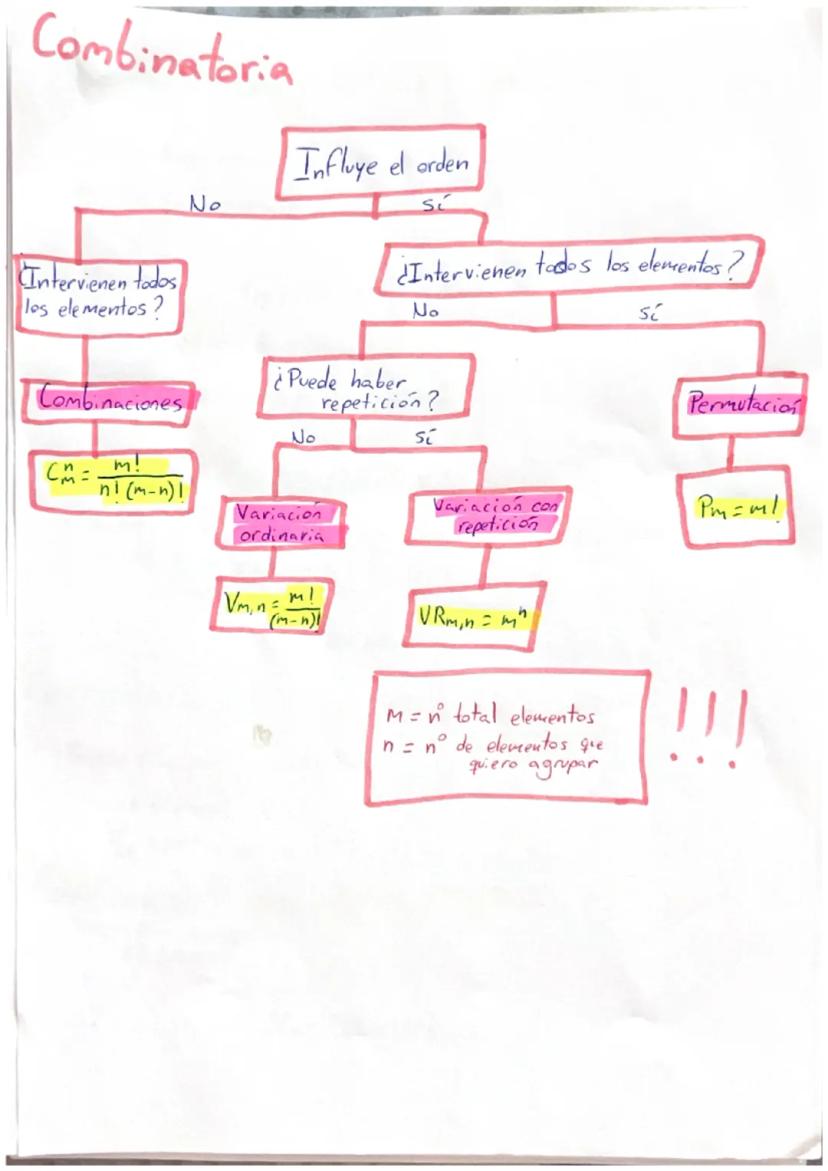 Combinatoria
Influye el orden
No
Sí
¿Intervienen todos
los elementos?
¿Intervienen todos los elementos?
No
Sí
Combinaciones
¿Puede haber
repetición?
Permutación
No
Sí
C_m^n = m! / n! (m-n)!
Variación
ordinaria
Variación con
repetición
Pm = m!
Vm,n = m! / (m-n)!
VRm,n = m^n
m = nº total elementos
n = nº de elementos que
quiero agrupar
!!!